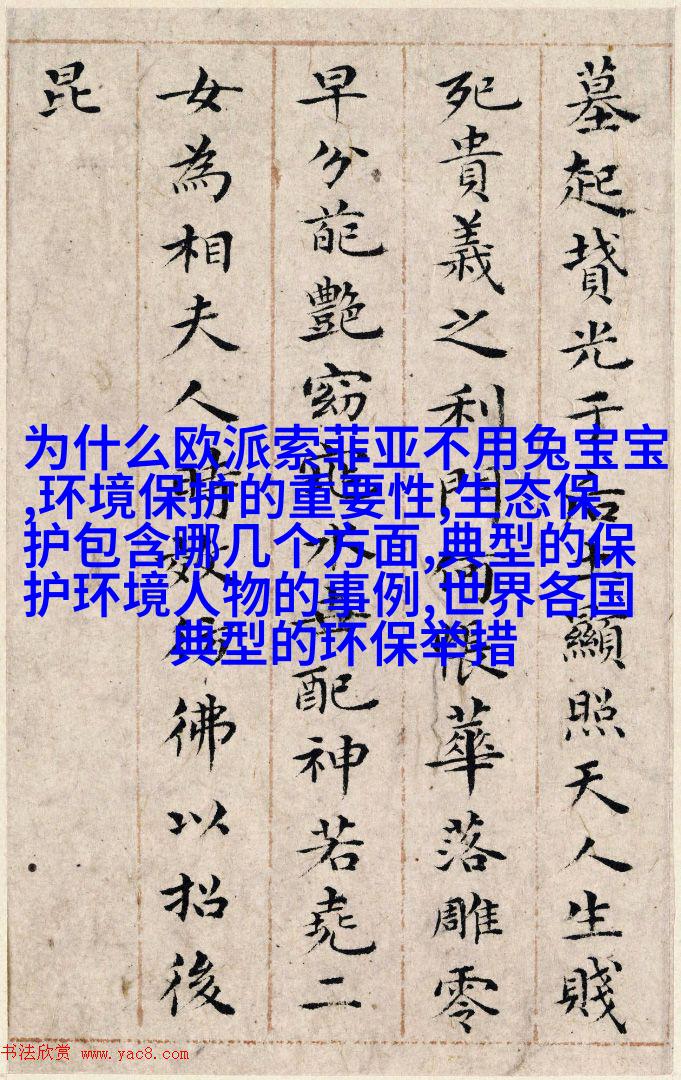 墓起墳光于后土顯照天人生賤
死貴義之利門何悵華落雕零
早分葩艷窈窕永世配神若堯二
女為相夫人時效仿彿以招後
昆
为什么欧派索菲亚不用兔宝宝
,环境保护的重要性,生态保
护包含哪几个方面,典型的保
护环境人物的事例,世界各国
典型的环保举措
书法欣赏 www.yac8.com